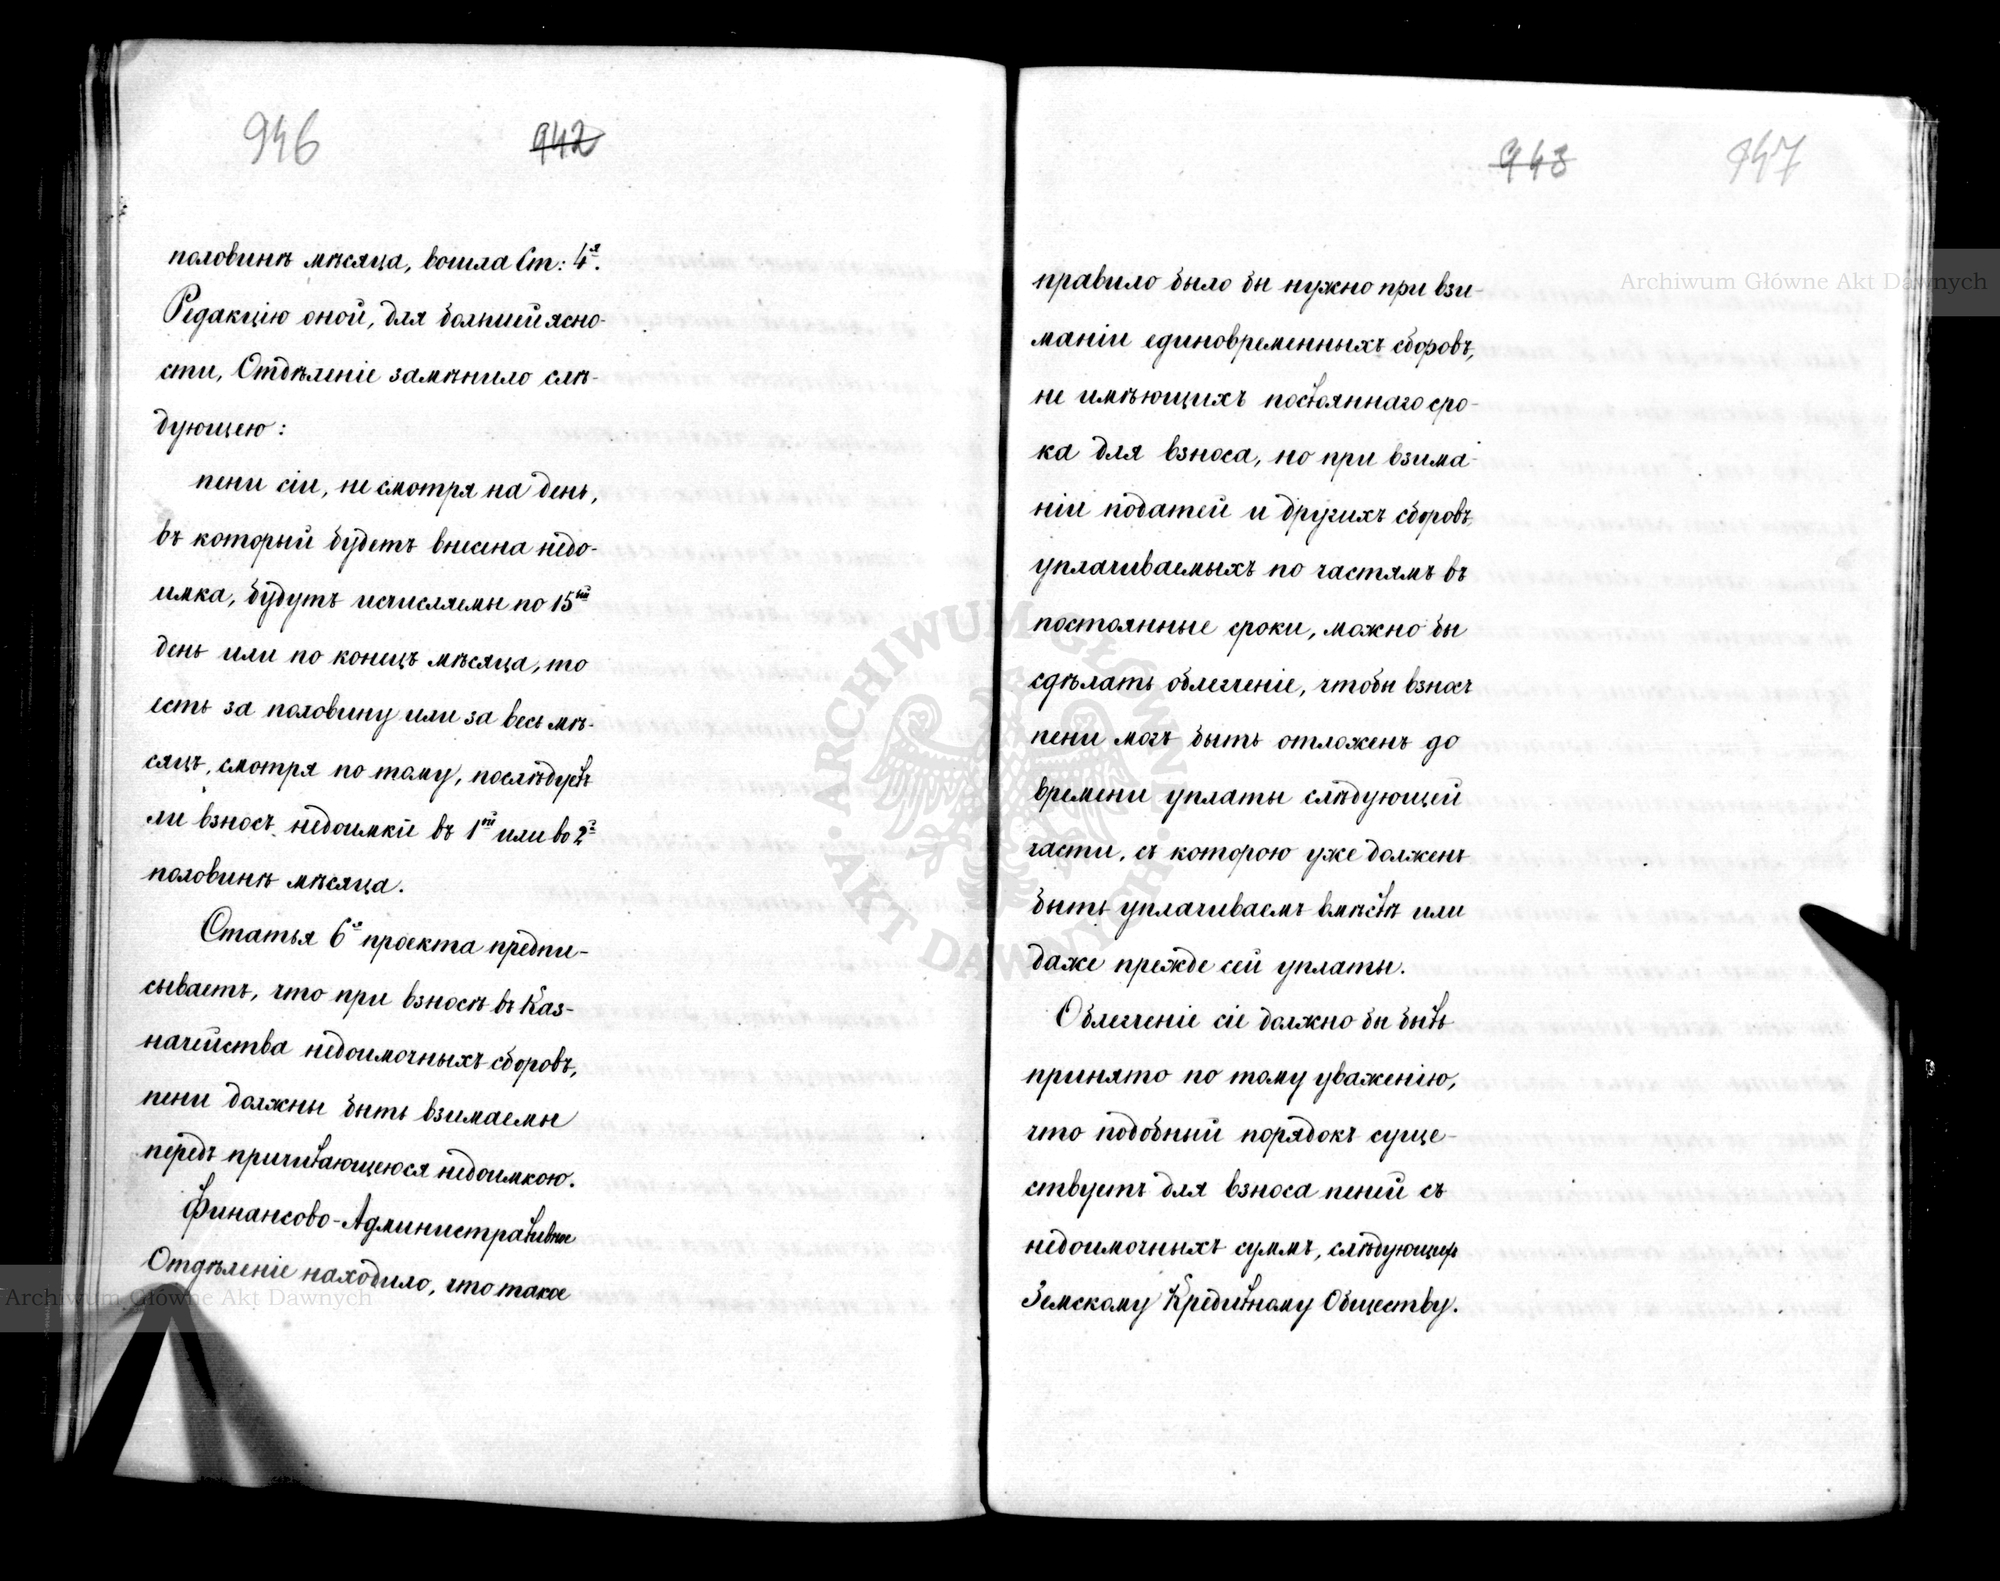 946 942
половинѣ мѣсяца, вошла Ст: 4я.
Редакцію оной, для большей ясно-
сти, Отдѣленіе замѣнило слѣ-
дующею:
пени сіи, не смотря на день,
въ который будетъ внесена недо-
имка, будутъ исчисляемы по 15ый
день или по конецъ мѣсяца, то
есть за половину или за весь мѣ-
сяцъ, смотря по тому, послѣдуетъ
ли взносъ недоимки въ 1й или во 2й
половинѣ мѣсяца.
Статья 6я проекта предпи-
сываетъ, что при взносѣ въ Каз-
начейства недоимочныхъ сборовъ,
пени должны быть взимаемы
передъ причитающеюся недоимкою.
Финансово-Административное
Отдѣленіе находило, что такое
943 947
правило было бы нужно при взи-
маніи единовременныхъ сборовъ,
не имѣющихъ постояннаго сро-
ка для взноса, но при взима-
ніи податей и другихъ сборовъ,
уплачиваемыхъ по частямъ въ
постоянные сроки, можно бы
сдѣлать облегченіе, чтобы взносъ
пени могъ быть отложенъ до
времени уплаты слѣдующей
части, съ которою уже долженъ
быть уплачиваемъ вмѣстѣ или
даже прежде сей уплаты.
Облегченіе сіе должно бы быть
принято по тому уваженію,
что подобный порядокъ суще-
ствуетъ для взноса пеней съ
недоимочныхъ суммъ, слѣдующихъ
Земскому Кредитному Обществу.
Archiwum Główne Akt Dawnych
Archiwum Główne Akt Dawnych
ARCHIWUM GŁÓWNE AKT DAWNYCH